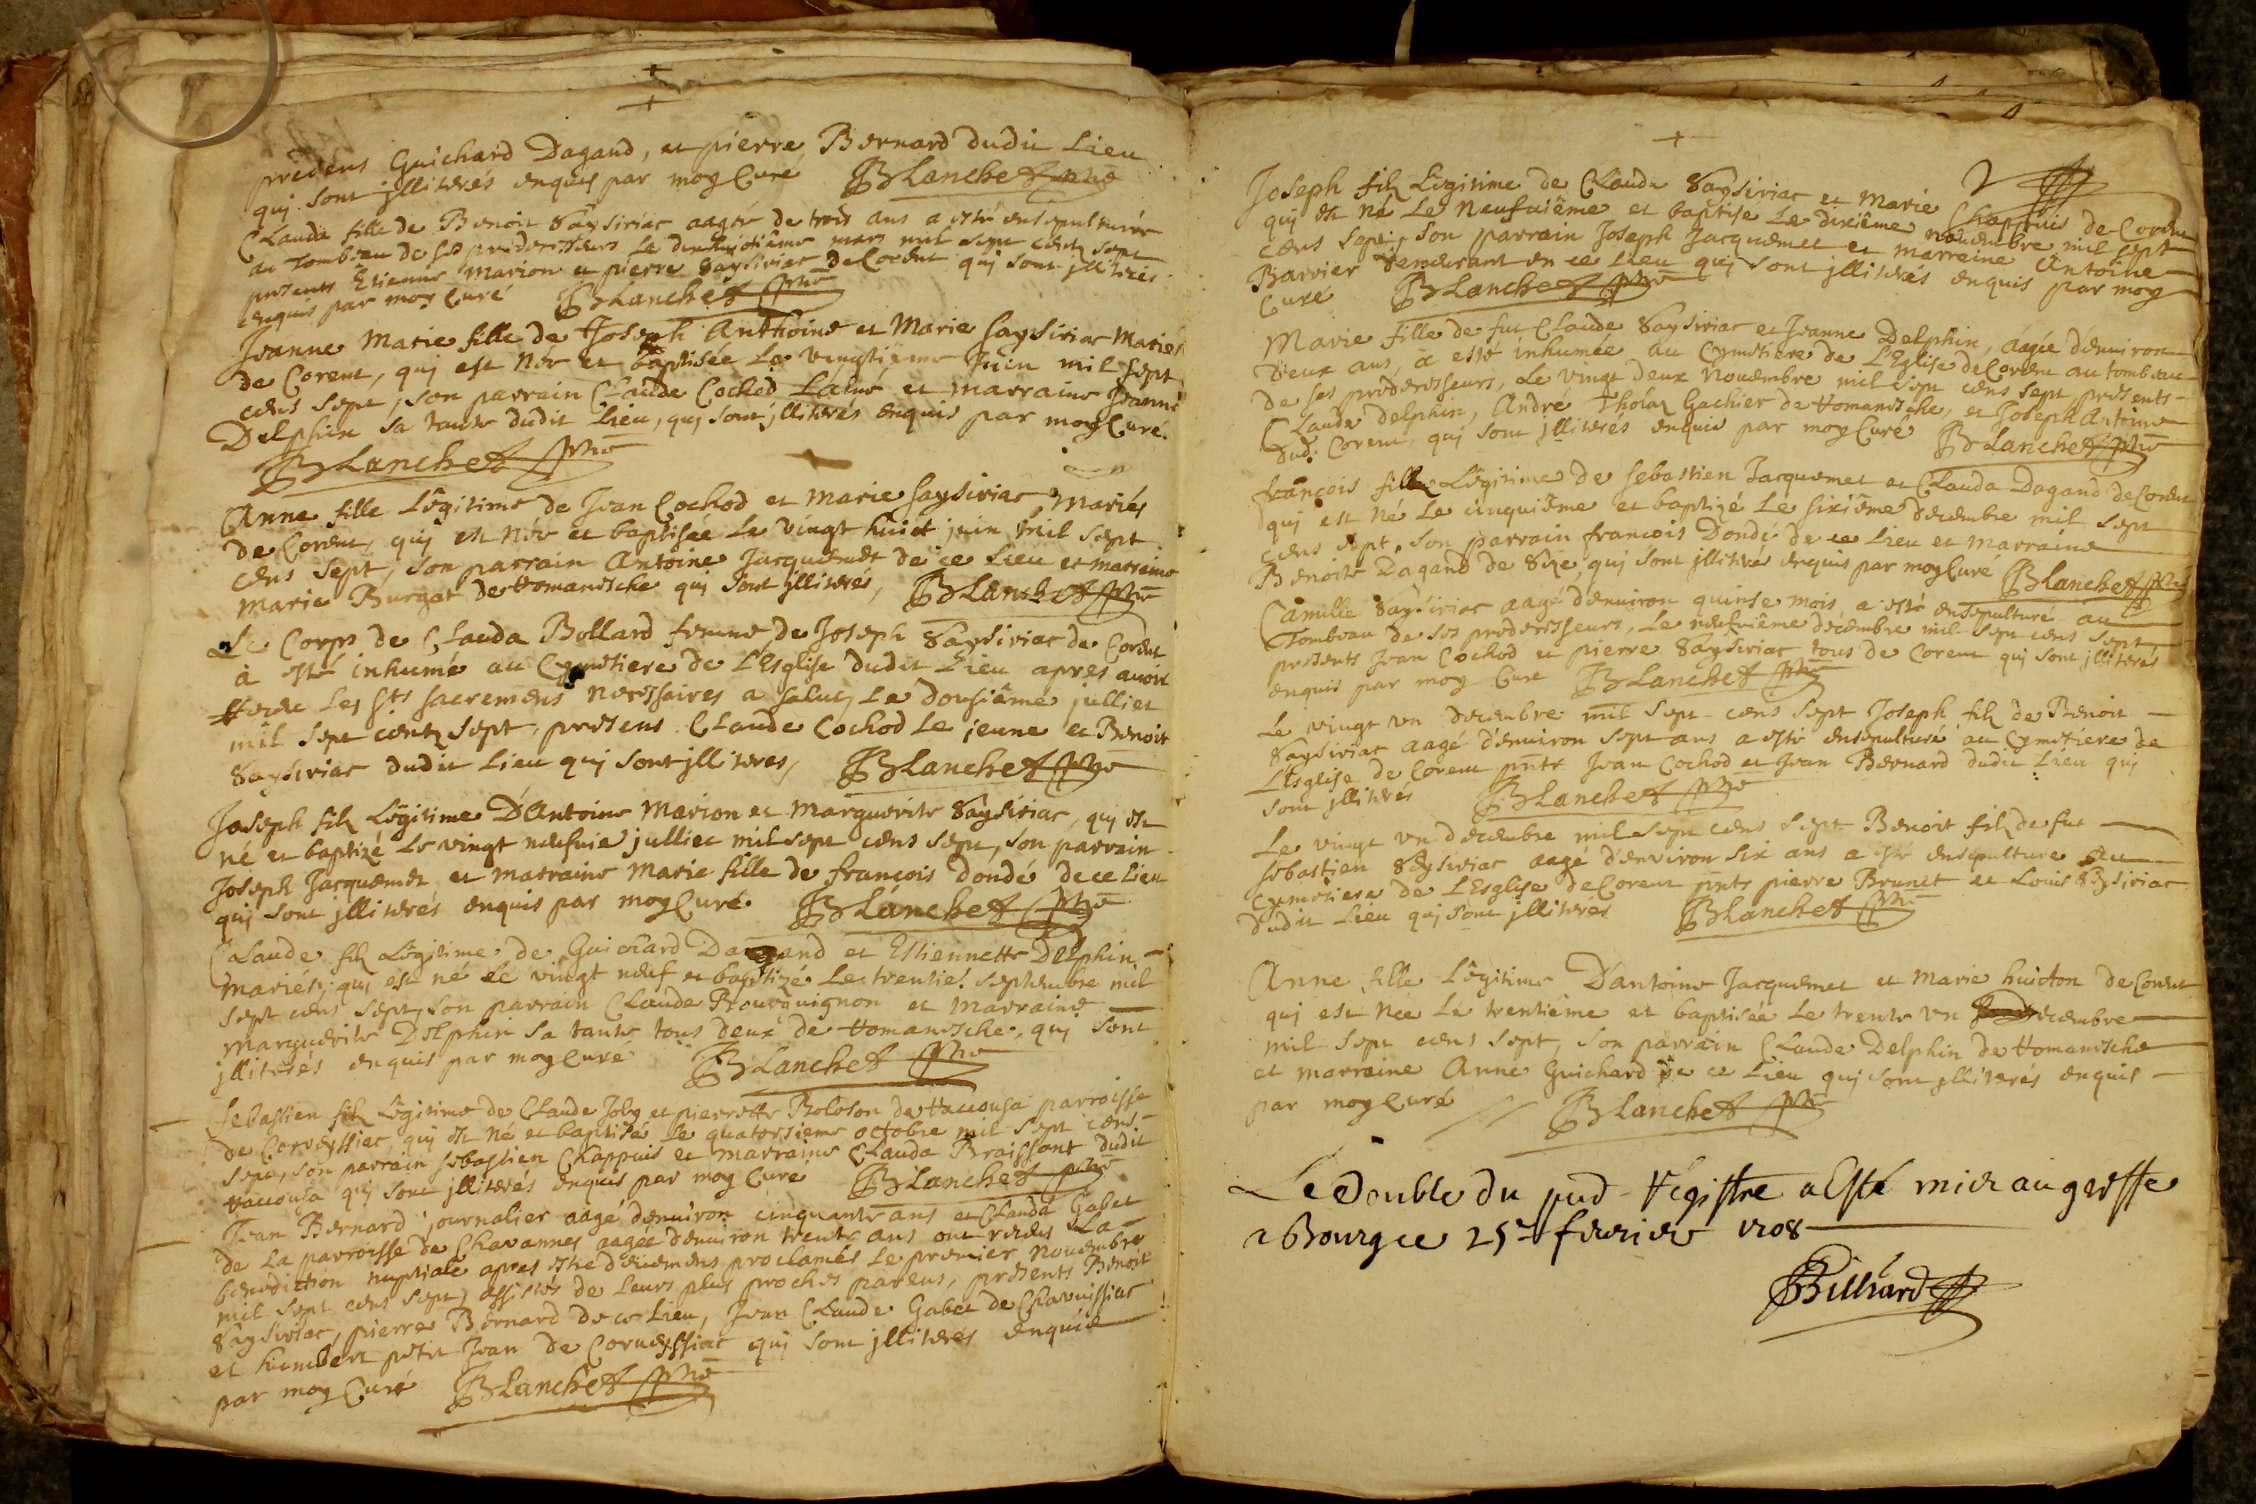 presens Guichard Dagand, et pierre Bernard dudit Lieu
qui sont jlliterés enquis par moy Curé BLanchet
CLauda fille de Benoit Saysiriac aagée de trois ans a esté ensepulturée
au Tombeau de ses predecesseurs le mars mil sept cents sept
presents Etienne Marion et pierre Saysiriac de Corent qui sont jlliterés
enquis par moy Curé BLanchet
Jeanne Marie fille de Joseph Anthoine et Marie Saysiriac Mariés
de Corent, qui est Née et baptisée Le vingtiême Juin mil sept
cens sept, son parrain CLaude Cochod Laîné et marraine Jeanne
Delphin sa tante dudit Lieu, qui sont jlliterés enquis par moy Curé.
BLanchet
Anne fille Lêgitime de Jean Cochod et Marie Saysiriac Mariés
de Corent, qui est Née et baptisée Le vingt huict juin mil sept
cens sept, son parrain Antoine Jacquemet de ce Lieu et marraine
Marie Burgat de Romanesche qui sont jlliterés, BLanchet
Le Corps de CLauda Bollard femme de Joseph Saysiriac de Corent
à esté inhumé au Cymetiere de L'Esglise dudit Lieu apres avoir
Receu Les sts sacremens necessaires a salut, Le dousiême julliet
mil sept cents sept, presens CLaude Cochod Le jeune et Benoit
Saysiriac dudit Lieu qui sont jlliteres, BLanchet
Joseph filz Lêgitime D'Antoine Marion et Marguerite Saysiriac, qui est
né et baptizé Le vingt neufvie julliet mil sept cens sept, son parrain
Joseph Jacquemet et marraine Marie fille de françois dondé de ce Lieu
qui sont jlliterés enquis par moy Curé. BLanchet
CLaude filz Lêgitime de Guichard Dagand et Estiennette Delphin
Mariés, qui est né Le vingt neuf et baptizé Le trentie. septembre mil
sept cens sept, son parrain CLaude Bourguignon et marraine
Marguerite Delphin sa tante tous deux de Romanesche, qui sont
jlliterés enquis par moy Curé BLanchet
Sebastien filz Lêgitime de CLaude Joly et pierrette Roloson de Racousa parroisse
de Corveyssiac, qui est né et baptisé Le quatorsieme octobre mil sept cens
sept, son parrain sebastien Chappuis et marraine CLauda Braissant dudit
Racousa qui sont jlliterés enquis par moy Curé BLanchet
Jean Bernard journalier aagé d'environ cinquante ans et CLauda Gabet
de La parroisse de Chavannes aagée d'environ trente ans ont receus La
benediction nuptiale apres estre deüemens proclamés Le premier Novembre
mil sept cens sept, assistés de Leurs plus proches parens, presents Benoit
Saysiriac, pierre Bernard de ce Lieu, Jean CLaude Gabet de Chavuissiac
et humbert petit Jean de Corveyssiac qui sont jlliterés enquis
par moy Curé BLanchet
Joseph filz Lêgitime de CLaude Saysiriac et Marie Chappuis de Corent
qui est né Le Neufviême et baptise Le dixiême novembre mil sept
cens sept, son parrain Joseph Jacquemet et marraine Antoine
Barvier demeurant en ce Lieu qui sont jlliterés enquis par moy
Curé BLanchet
Marie fille de fut CLaude Saysiriac et Jeanne Delphin, aagée d'environ
deux ans, à esté inhumée au Cymetiere de L'Eglise de Corent au tombeau
de ses predecesseurs, Le vingt deux Novembre mil sept cens sept, presents
CLaude delphin, André Tholaz Gachier de Romanesche, et Joseph Antoine
dud. Corent, qui sont jlliterés enquis par moy Curé BLanchet
françois filz Lêgitime de sebastien Jacquemet et CLauda Dagand de Corent
qui est né Le cinquiême et baptizé Le sixiême decembre mil sept
cens sept, son parrain francois Dondé de ce Lieu et Marraine
Benoite Dagand de qui sont jlliterés enquis par moy Curé BLanchet
Camille Saysiriac aagé d'environ quinse mois, a esté ensepulturé au
Tombeau de ses predecesseurs, Le neufviême decembre mil sept cens sept
presents Jean Cochod et pierre Saysiriac tous de Corent qui sont jlliterés
enquis par moy Curé BLanchet
Le vingt un decembre mil sept cens sept Joseph filz de Benoit
Saysiriac aagé d'environ sept ans a esté ensepulturé au Cymetiere de
L'Esglise de Corent pnts Jean Cochod et Jean Bernard dudit Lieu qui
sont jlliterés BLanchet
Le vingt un decembre mil sept cens sept Benoit filz de fut
sebastien Saysiriac aagé d'environ six ans a esté ensepulture Au
Cymetiere de L'Esglise de Corent pnts pierre Brunet et Louis Saysiriac
dudit Lieu qui sont jlliterés BLanchet
Anne fille Lêgitime D'antoine Jacquemet et Marie huicton de Corent
qui est Née Le trentiême et baptisée Le trente un decembre
mil sept cens sept, son parrain CLaude Delphin de Romanesche
et marraine Anne Guichard de ce Lieu qui sont jlliterés enquis
par moy Curé BLanchet
Le double du pnd Registre a Esté mis au greffe
a Bourg ce 25e fevrier 1708
Billiard